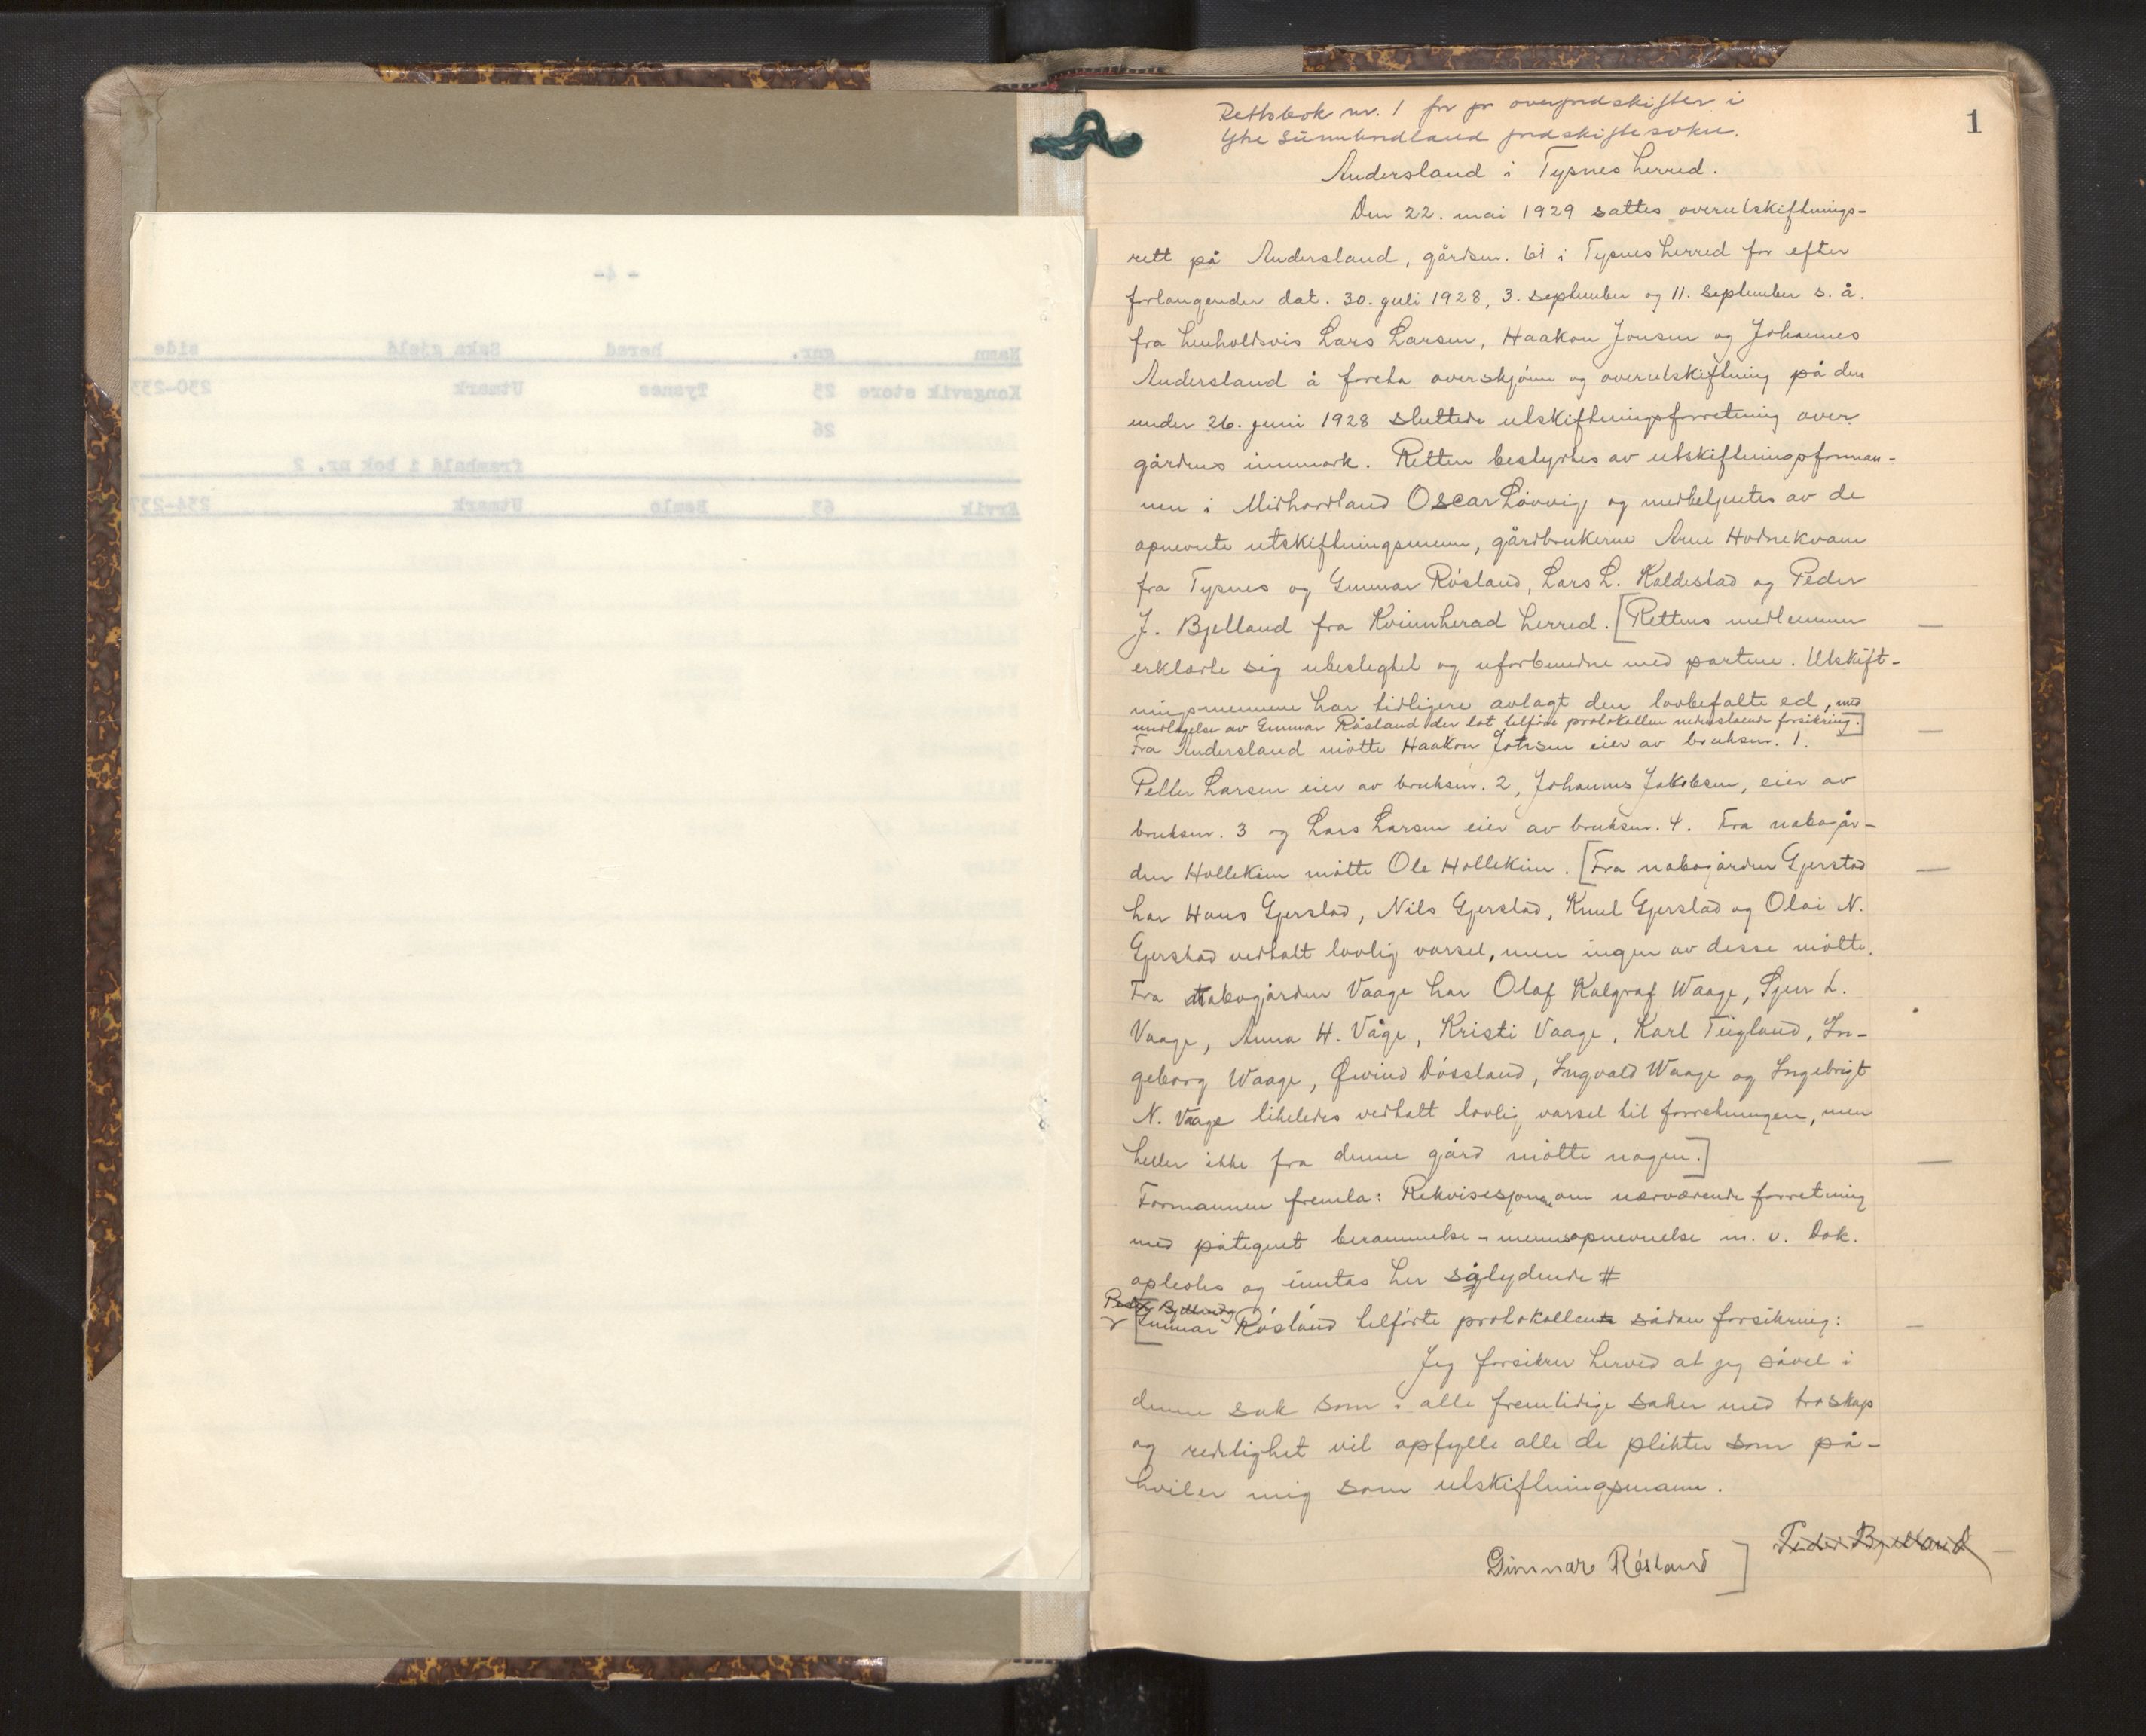 1
Rettsbok nr. 1 for jo overjordskifter i
Ytre Sunnhordland jordskiftesokn.
Andersland i Tysnes herred.
Den 22. mai 1929 sattes overutskiftnings-
rett på Andersland, gårdsnr. 61 i Tysnes herred for efter
forlangender dat. 30. juli 1928, 3. september og 11. september s. å.
fra henholdsvis Lars Larsen, Haakon Jonsen og Johannes
Andersland å foreta overskjønn og overutskiftning på den
under 26. juni 1928 sluttede utskiftningsforretning over
gårdens innmark. Retten bestyrtes av utskiftningsforman-
nen i Midhordland Oscar Løvvig og medbetjentes av de
opnevnte utskiftningsmenn, gårdbrukerne Arne Hodnekvam
fra Tysnes og Gunnar Røsland, Lars L. Kaldestad og Peder
J. Bjelland fra Kvinnherad herred. [Rettens medlemmer
erklærte sig ubeslegtet og uforbundne med partene. Utskift-
ningsmennene har tidligere avlagt den lovbefalte ed, med
undtagelse av Gunnar Røsland der lot tilføre protokollen nedenstående forsikring.]
Fra Andersland møtte Haakon Johnsen eier av bruksnr. 1.
Petter Larsen eier av bruksnr. 2, Johannes Jakobsen, eier av
bruksnr. 3 og Lars Larsen eier av bruksnr. 4. Fra nabogår-
den Hollekim møtte Ole Hollekim. [Fra nabogården Gjerstad
har Hans Gjerstad, Nils Gjerstad, Knut Gjerstad og Olai N.
Gjerstad vedtatt lovlig varsel, men ingen av desse møtte.
Fra nabogården Vaage har Olaf Kalgraf Waage, Sjur L.
Vaage, Anna H. Våge, Kristi Vaage, Karl Teigland, In-
geborg Waage, Øivind Døssland, Ingvald Waage og Ingebrigt
N. Vaage likeledes vedtatt lovlig varsel til forretningen, men
heller ikke fra denne gård møtte nogen.]
Formannen fremla: Rekvisisjone om nærværende forretning
med påtegnet berammelse - mennsopnevnelse m. v. Dok.
oplestes og inntas her sålydende #
Peder Bjelland og
[Gunnar Røsland tilførte protokollen sådan forsikring:
Jeg forsikrer herved at jeg såvel i
denne sak som i alle fremtidige saker med troskap
og redelighet vil opfylle alle de plikter som på-
hviler mig som utskiftningsmann.
Peder Bjelland
Gunnar Røsland]
- 4 -
Namn gnr. herad Saka gjeld side
Kongsvik store 25 Tysnes Utmark 230-233
26
framhald i bok nr. 2
Ervik 63 Bømlo Utmark 234-237